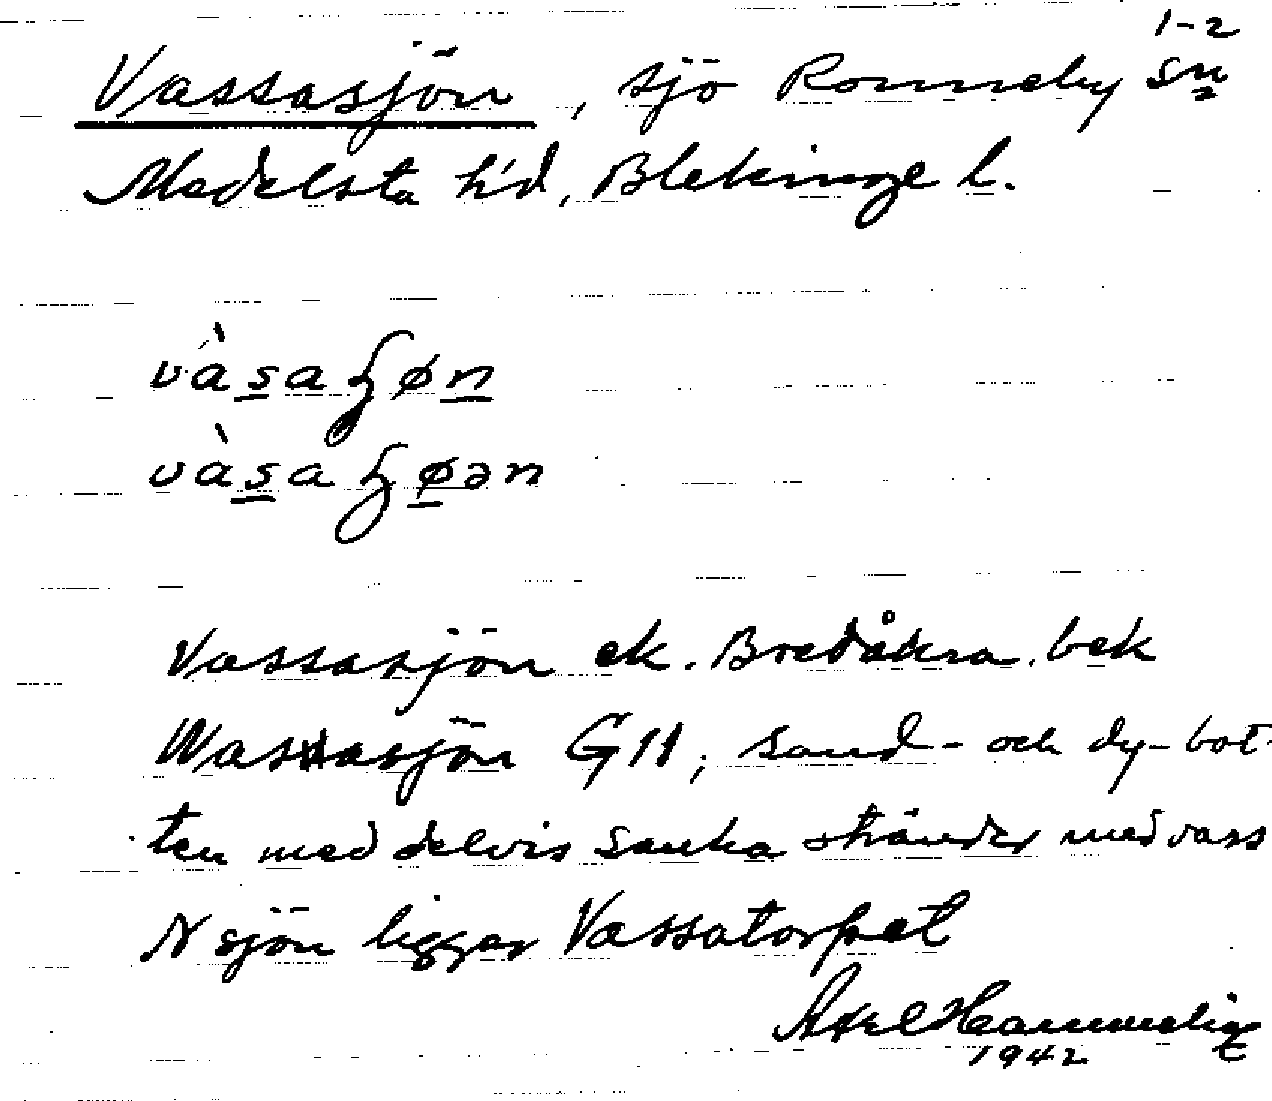 1-2
Vassasjön, sjö Ronneby sn
Medelsta h'd, Blekinge l.
vàsaɧøn
vàsaɧøən
Vassasjön ek. Bredåkra. bek
Wassasjön G11, sand- och dy-bot-
ten med delvis sanka stränder med vass
N sjön ligger Vassatorpet
Axel
1942